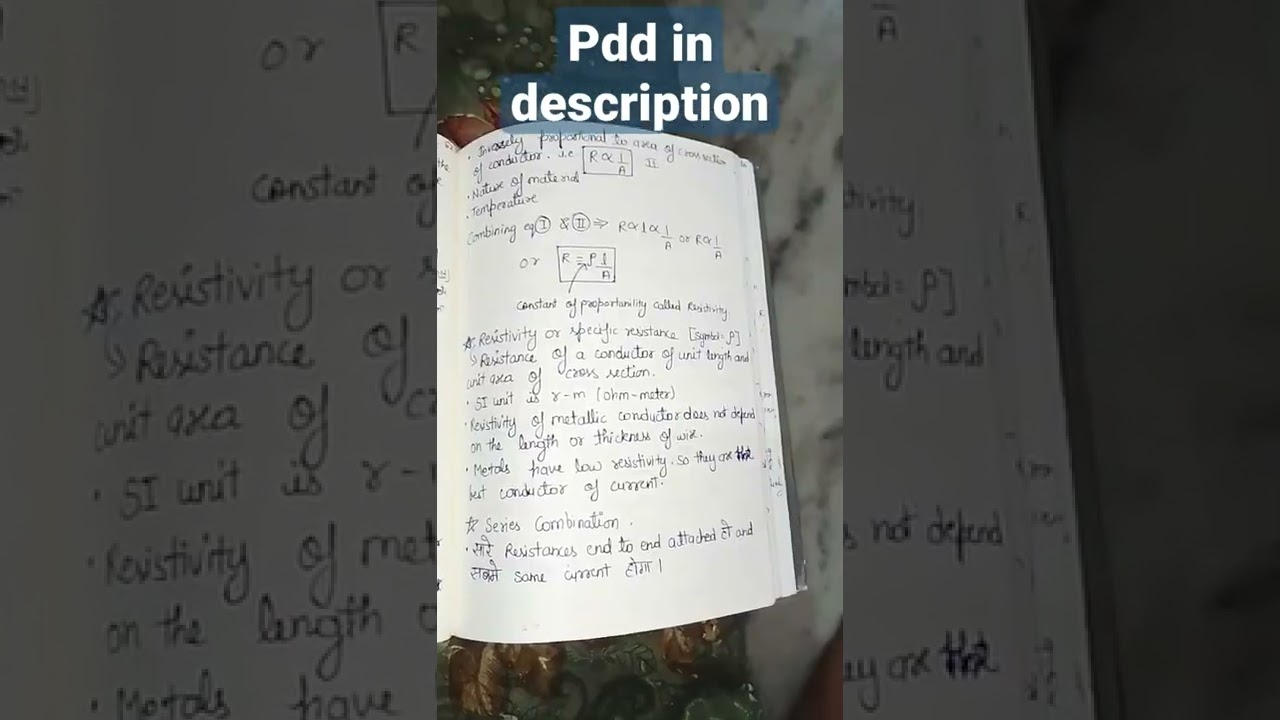 Pdd in
description
• Inversely proportional to area of cross section
of conductor. i.e R ∝ 1/A II
• Nature of material
• Temperature
Combining eq I & II ⇒ R ∝ l ∝ 1/A or R ∝ 1/A
or R = ρ l/A
constant of proportanility called Resistivity.
☆ Resistivity or specific resistance [Symbol = ρ]
↳ Resistance of a conductor of unit length and
unit area of cross section.
• SI unit is r-m (ohm-meter)
• Resistivity of metallic conductor does not depend
on the length or thickness of wire.
• Metals have low resistivity. So they are the
best conductor of current.
☆ Series Combination.
• सारे Resistances end to end attached हो and
सबमे same current होगा।